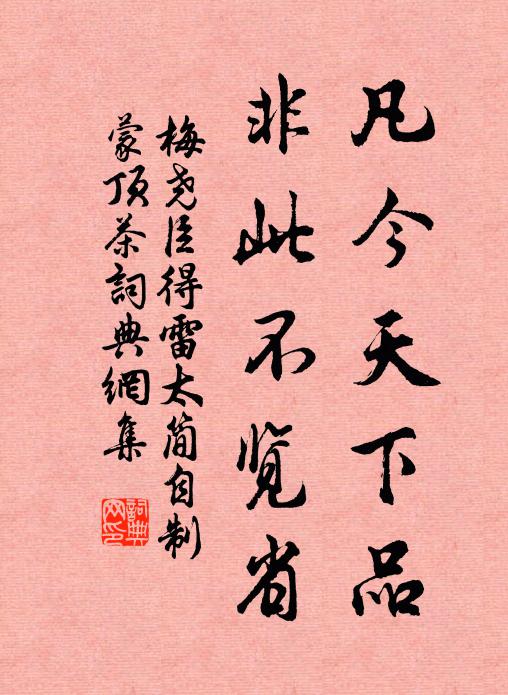 凡今天下品
非此不览省
梅尧臣得雷太简自制
蒙顶茶詞典網集
詞典
网印